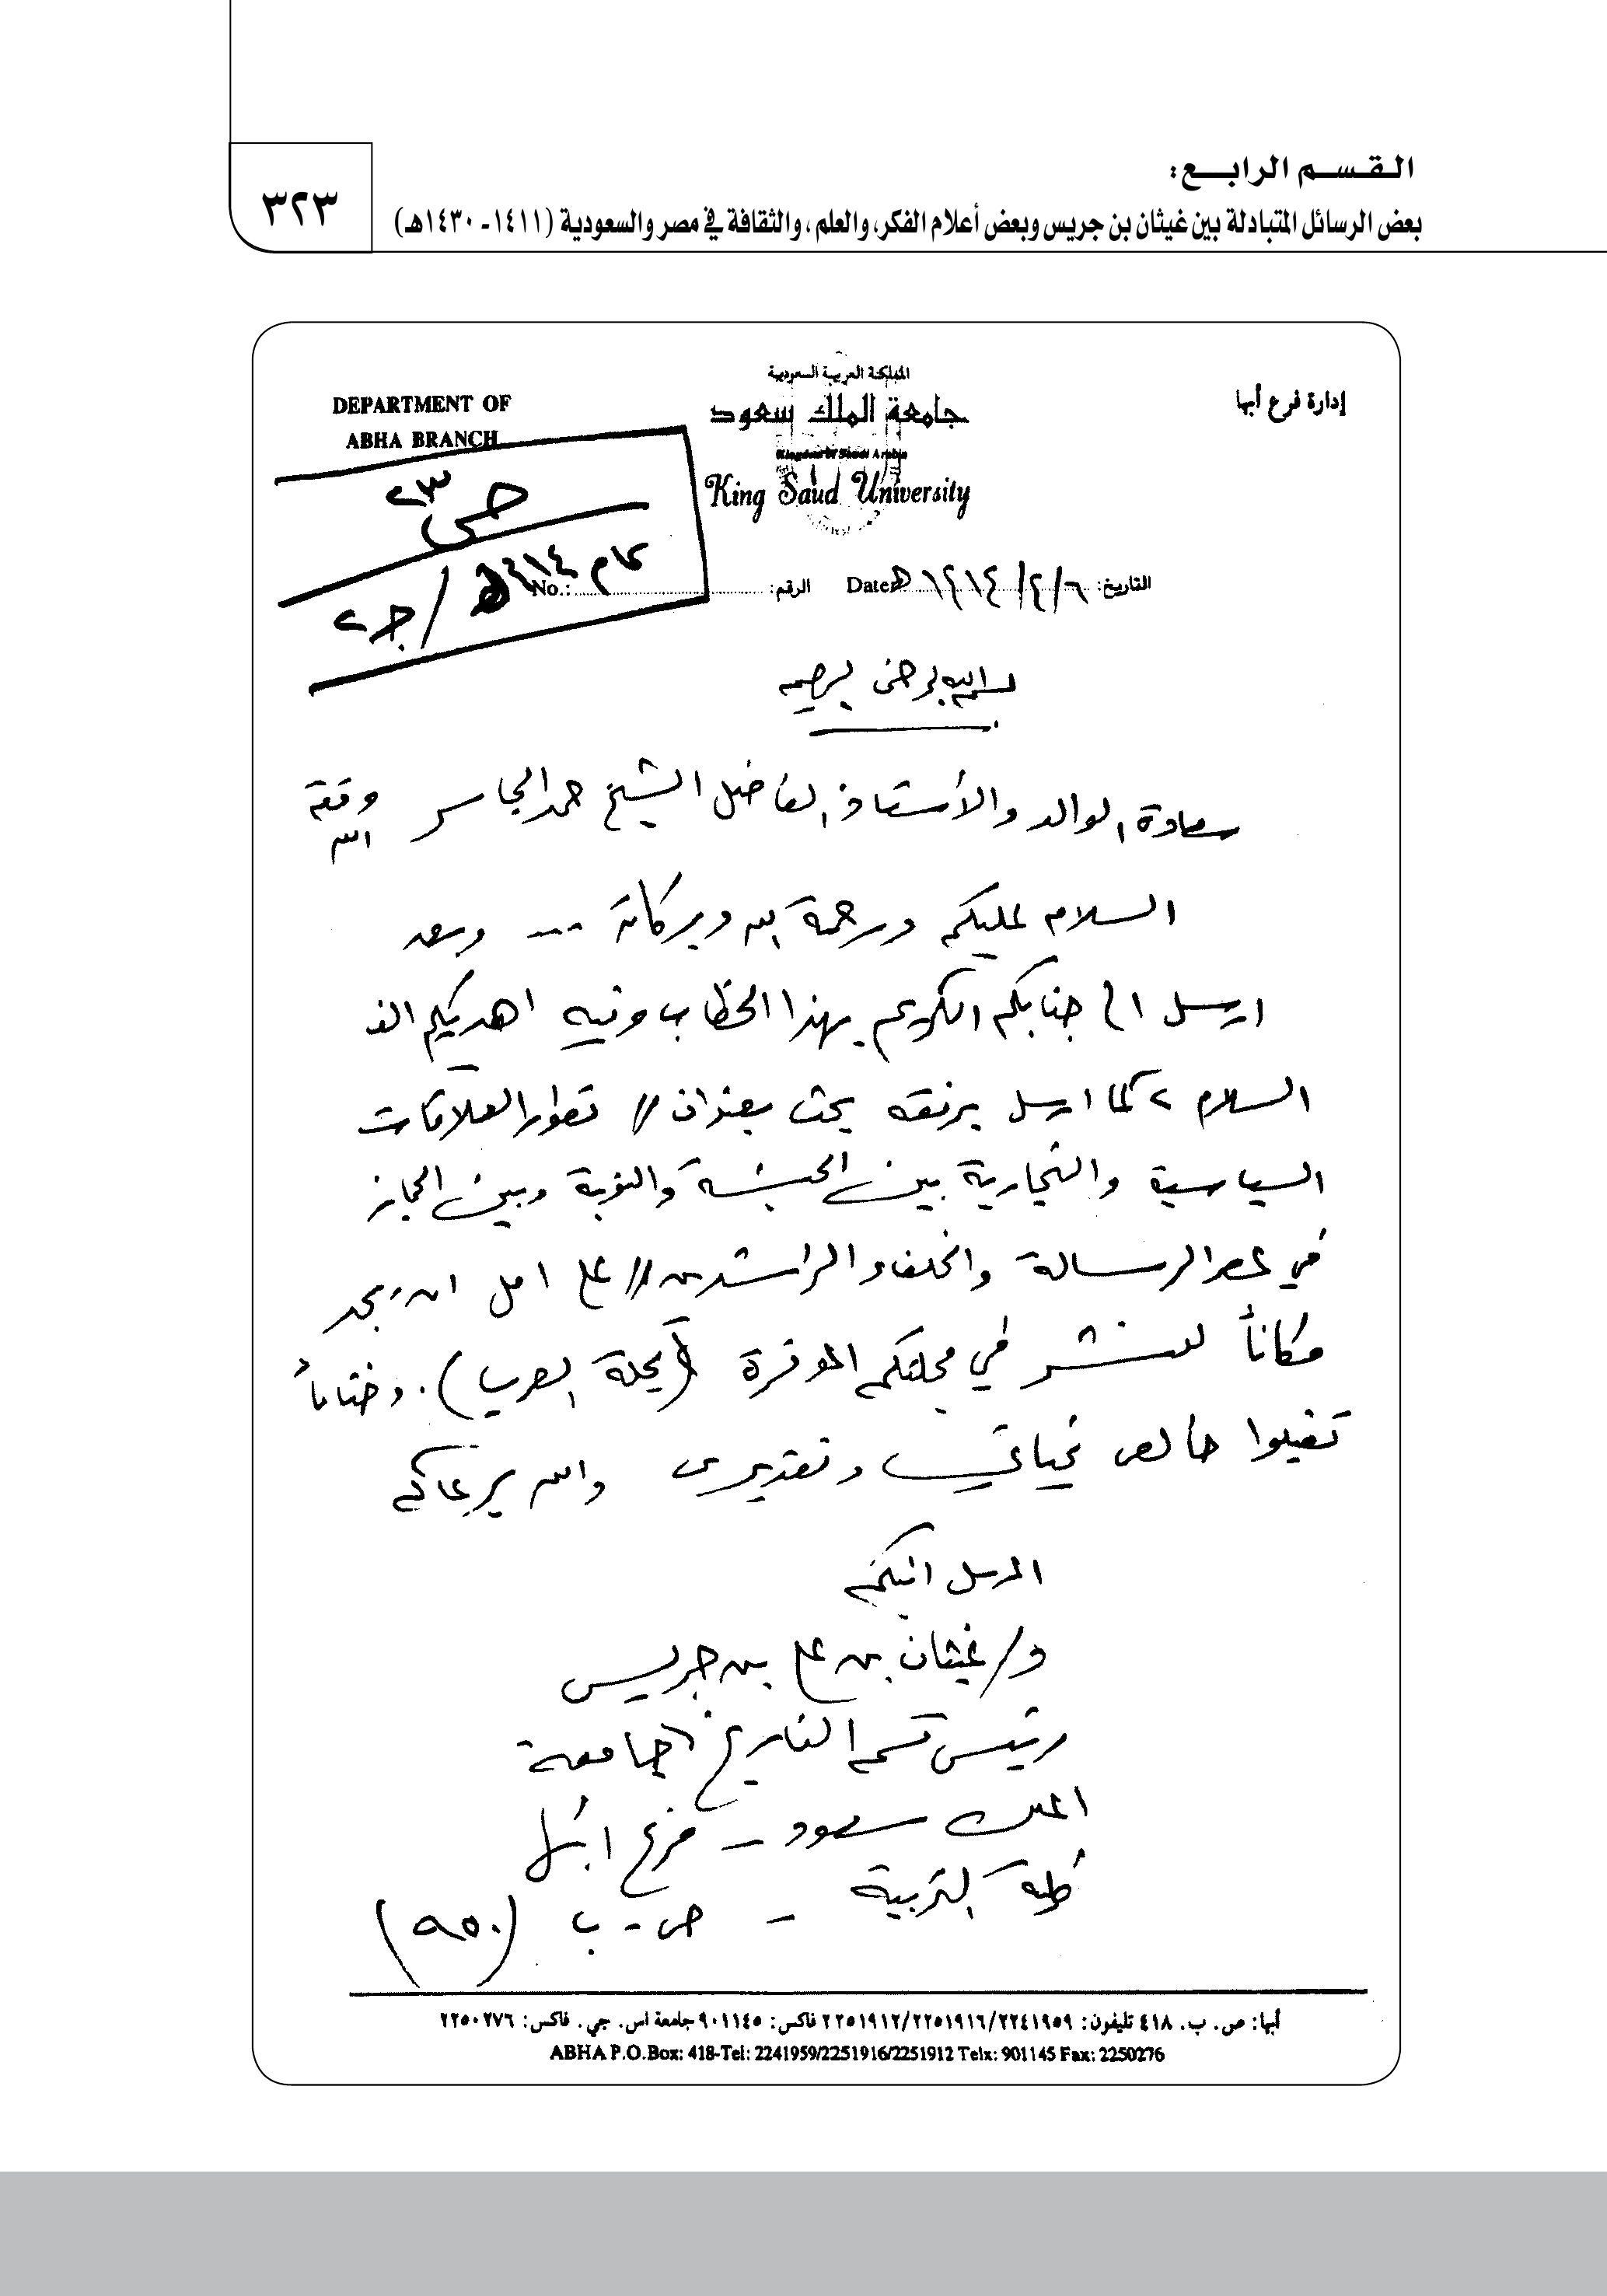 القسم الرابع:
بعض الرسائل المتبادلة بين غيثان بن جريس وبعض أعلام الفكر، والعلم، والثقافة في مصر والسعودية (١٤١١- ١٤٣٠هـ)
٣٢٣
المملكة العربية السعودية
إدارة فرع أبها
جامعة الملك سعود
DEPARTMENT OF
ABHA BRANCH
Kingdom of Saudi Arabia
King Saud University
ص ٢٣
عام ١٤١٤هـ / ج٢
التاريخ: ٦/٢/١٤١٤هـ Date
الرقم: No.:
بسم الله الرحمن الرحيم
سعادة الوالد والأستاذ الفاضل الشيخ حمد الجاسر وفقه
الله
السلام عليكم ورحمة الله وبركاته --- وبعد
ارسل الى جنابكم الكريم بهذا الخطاب وفيه اهديكم الف
السلام، كما ارسل برفقه بحث بعنوان // تطور العلاقات
السياسية والتجارية بين الحبشة والنوبة وبين الحجاز
في عصر الرسالة والخلفاء الراشدين // على امل ان يجد
مكاناً للنشر في مجلتكم الموقرة (مجلة العرب). وختاماً
تقبلوا خالص تحياتي وتقديرى والله يرعاكم
المرسل اليكم
د/ غيثان بن علي بن جريس
رئيس قسم التاريخ بجامعة
الملك سعود - فرع ابها
كلية التربية - ص - ب (٩٥٠)
أبها: ص. ب. ٤١٨ تليفون: ٢٢٤١٩٥٩/٢٢٥١٩١٦/٢٢٥١٩١٢ فاكس: ٩٠١١٤٥ جامعة اس. جي. فاكس: ٢٢٥٠٢٧٦
ABHA P.O.Box: 418-Tel: 2241959/2251916/2251912 Telx: 901145 Fax: 2250276